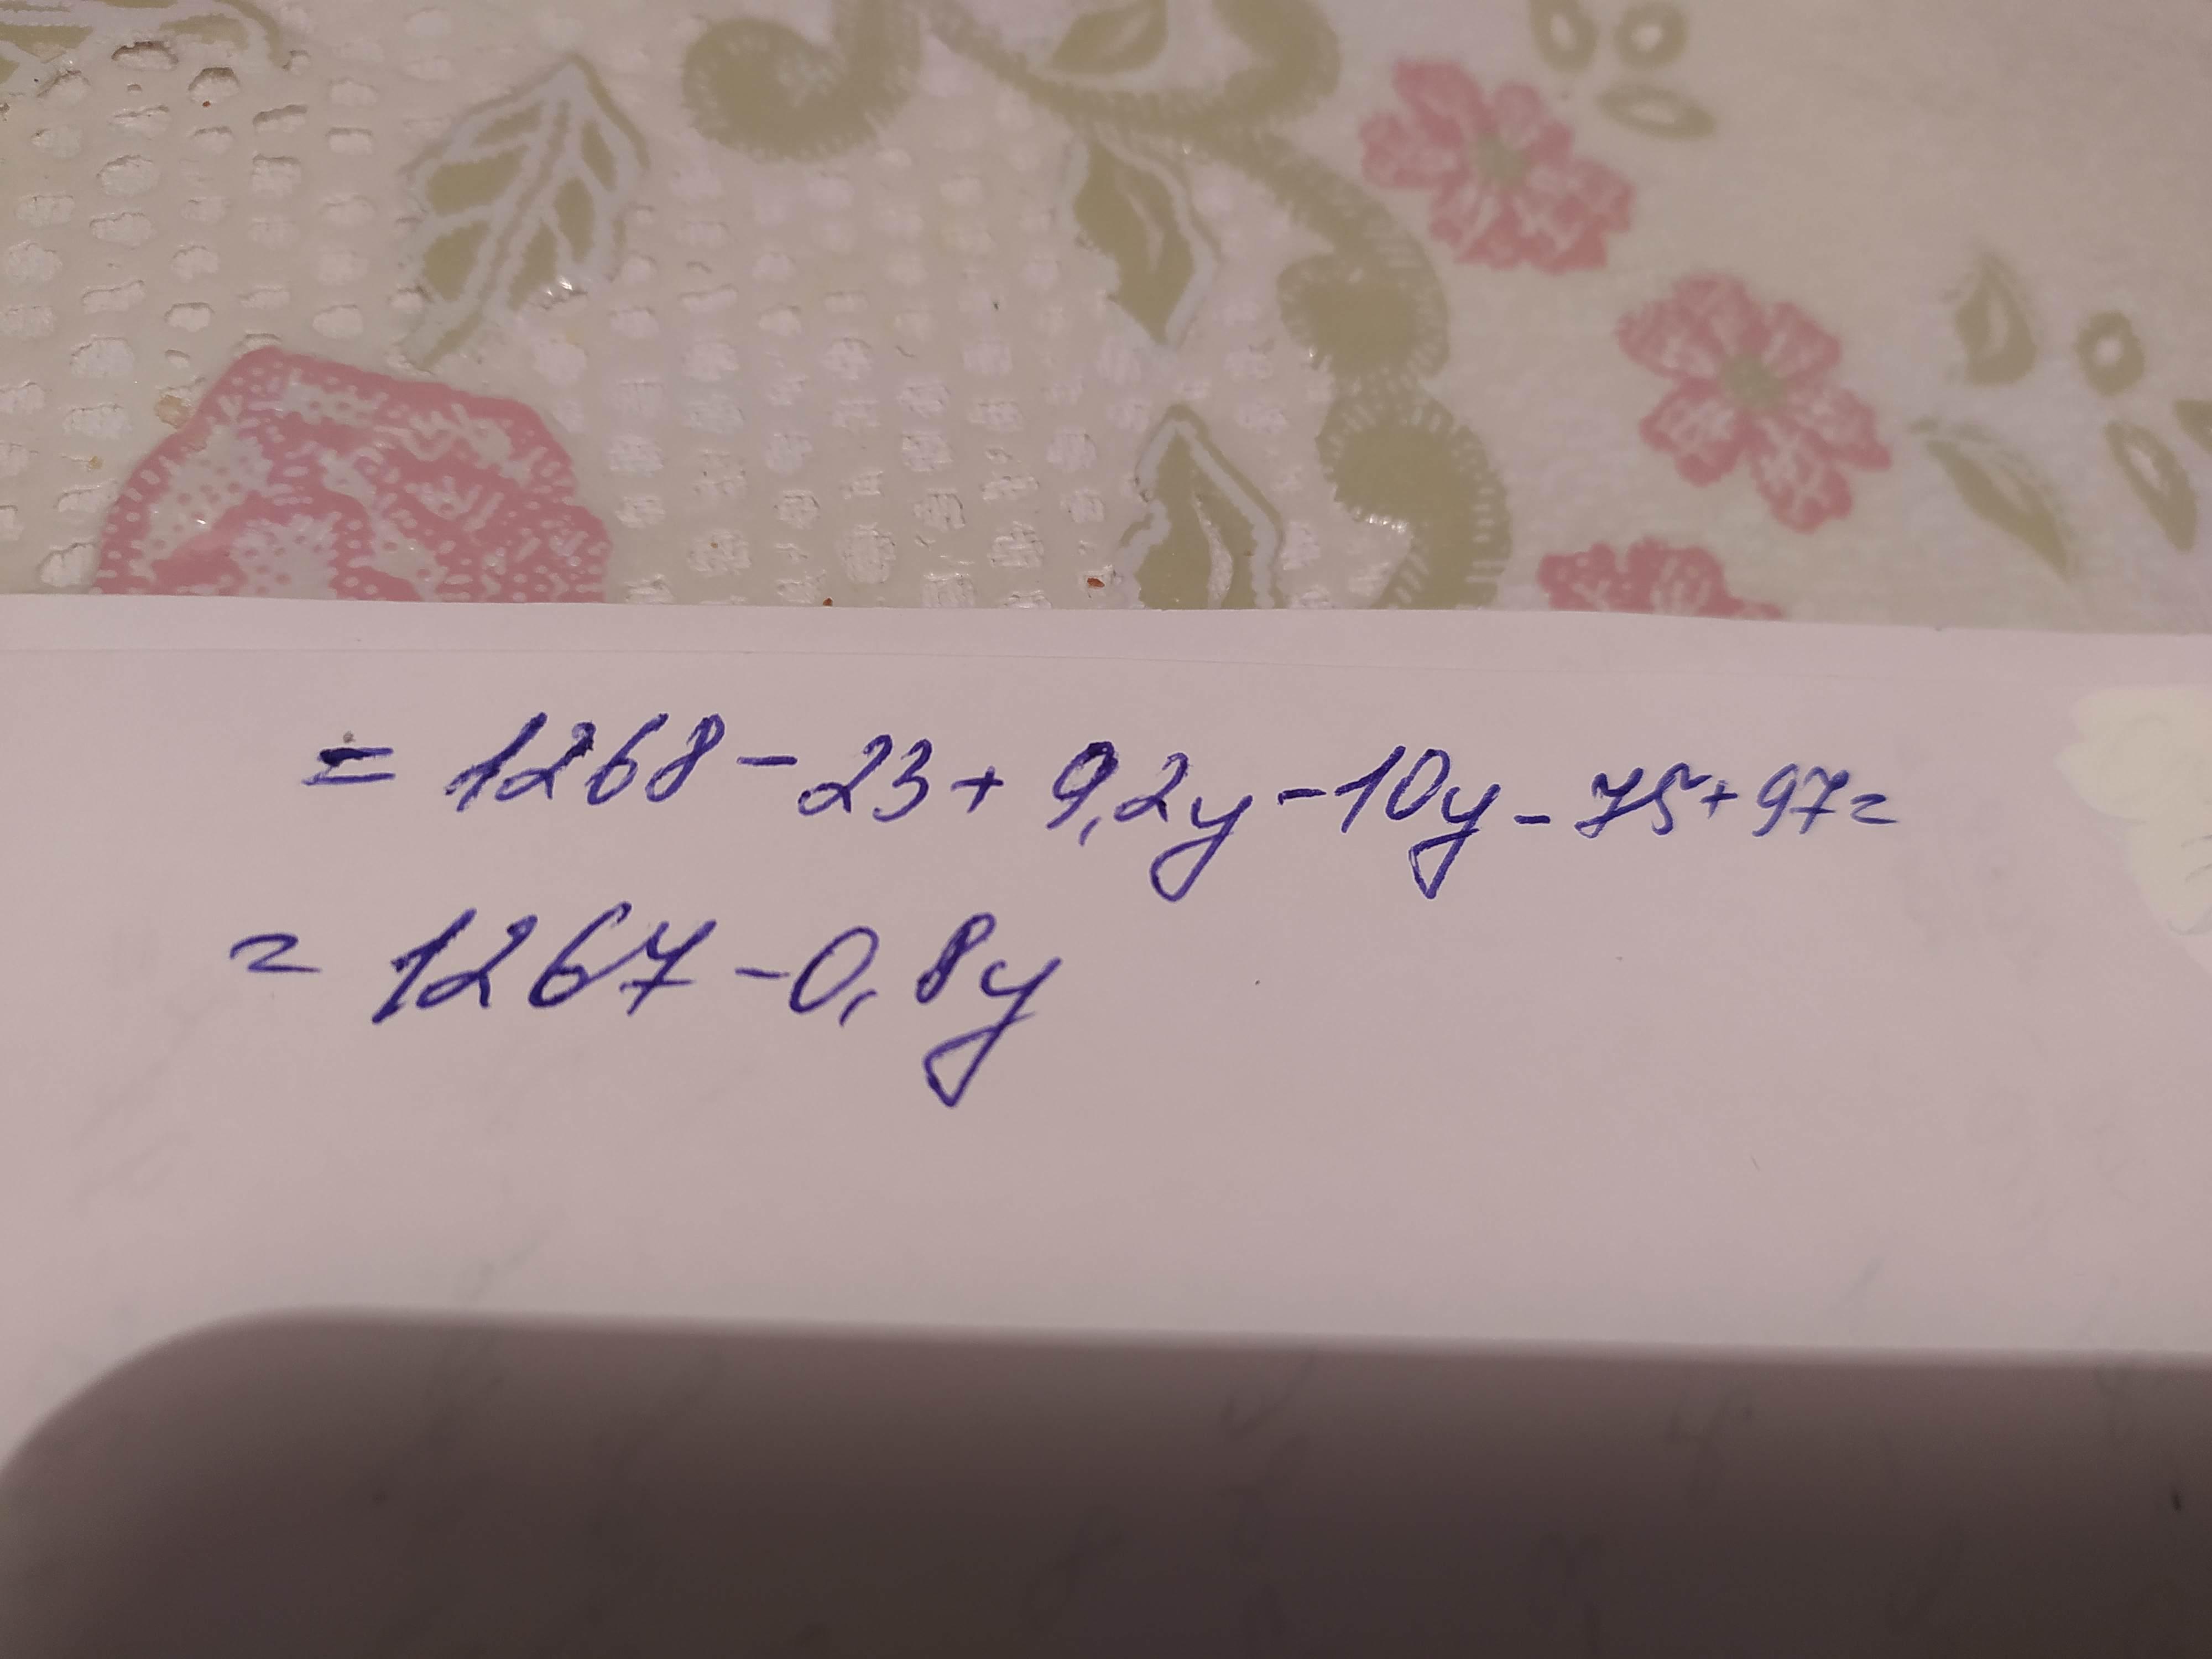 = 1268 - 23 + 9,2y - 10y - 75 + 97 =
= 1267 - 0,8y